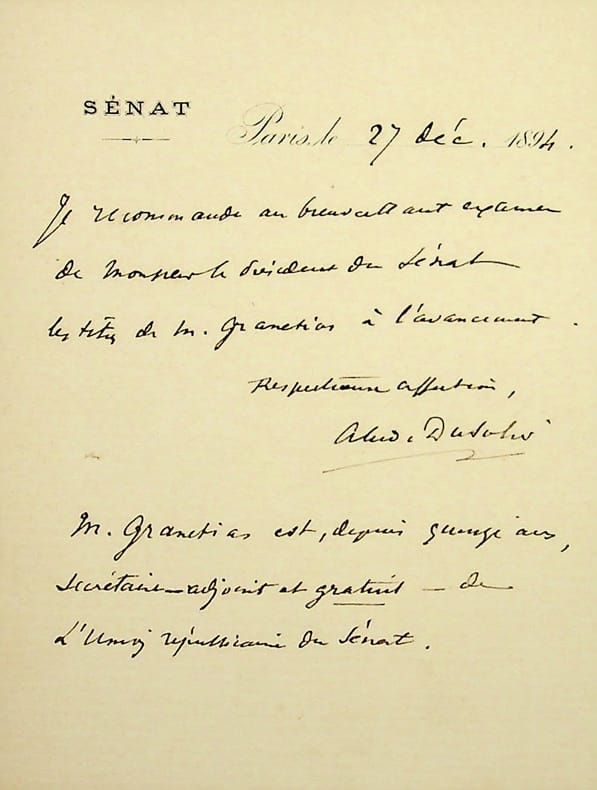 SÉNAT
Paris, le 27 déc. 1894.
Je recommande au bienveillant examen
de Monsieur le Président du Sénat
les titres de M. Granetias à l'avancement.
Respectueuse affection,
Alcide Dusolier
M. Granetias est, depuis quinze ans,
secrétaire-adjoint et gratuit — de
L'Union républicaine du Sénat.